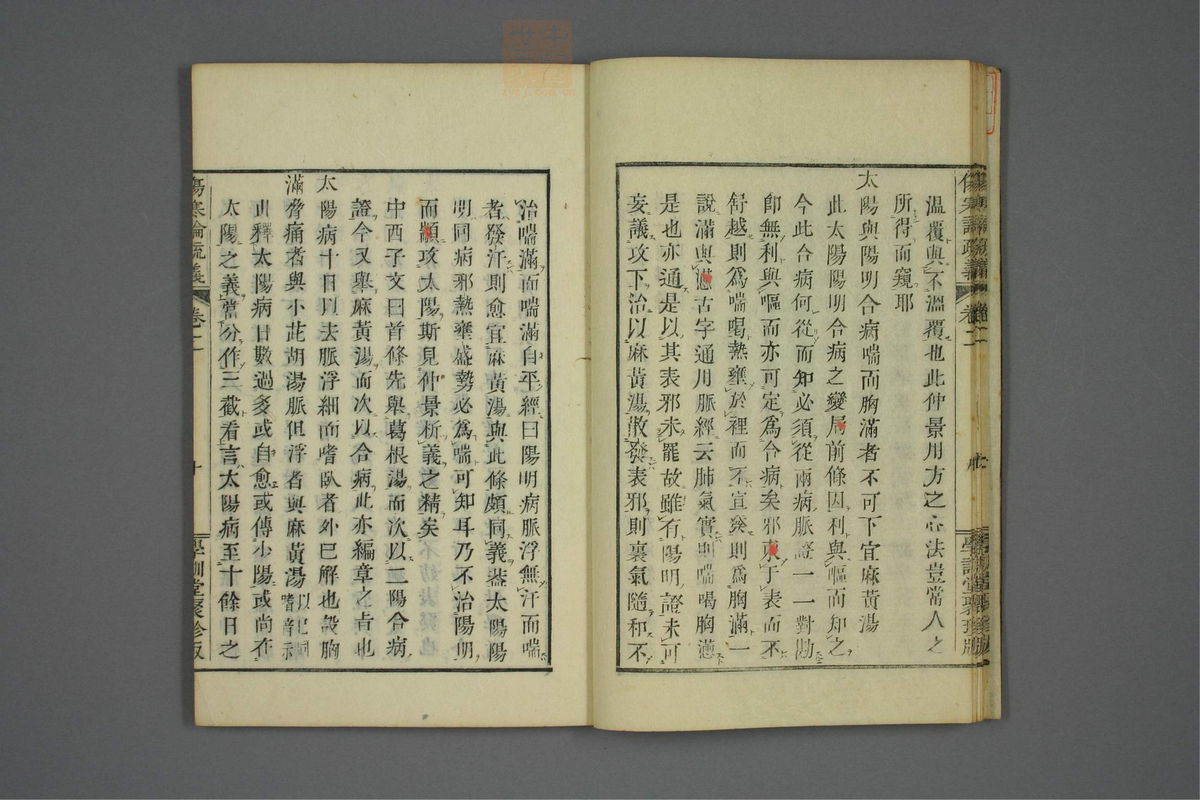 溫覆與不溫覆也此仲景用方之心法豈常人之
所得而窺耶
太陽與陽明合病喘而胸滿者不可下宜麻黃湯
此太陽陽明合病之變局前條因利與嘔而知之
今此合病何從而知必須從兩病脈證一一對勘
卽無利與嘔而亦可定爲合病矣邪東于表而不
舒越則爲喘喝熱壅於裡而不宣發則爲胸滿一
說滿與懣古字通用脈經云肺氣實則喘喝胸懣
是也亦通是以其表邪未罷故雖有陽明證未可
妄議攻下治以麻黃湯散發表邪則裏氣隨和不
治喘滿而喘滿自平經曰陽明病脈浮無汗而喘
者發汗則愈宜麻黃湯與此條頗同義葢太陽陽
明同病邪熱壅盛勢必爲喘可知耳乃不治陽明
而顓攻太陽斯見仲景析義之精矣
中西子文曰首條先舉葛根湯而次以二陽合病
證今又舉麻黃湯而次以合病此亦編章之旨也
太陽病十日以去脈浮細而嗜臥者外已解也設胸
滿脅痛者與小茈胡湯脈但浮者與麻黃湯
此釋太陽病日數過多或自愈或傳少陽或尚在
太陽之義當分作三截看言太陽病至十餘日之
傷寒論疏義
卷二
十
學訓堂聚珍版